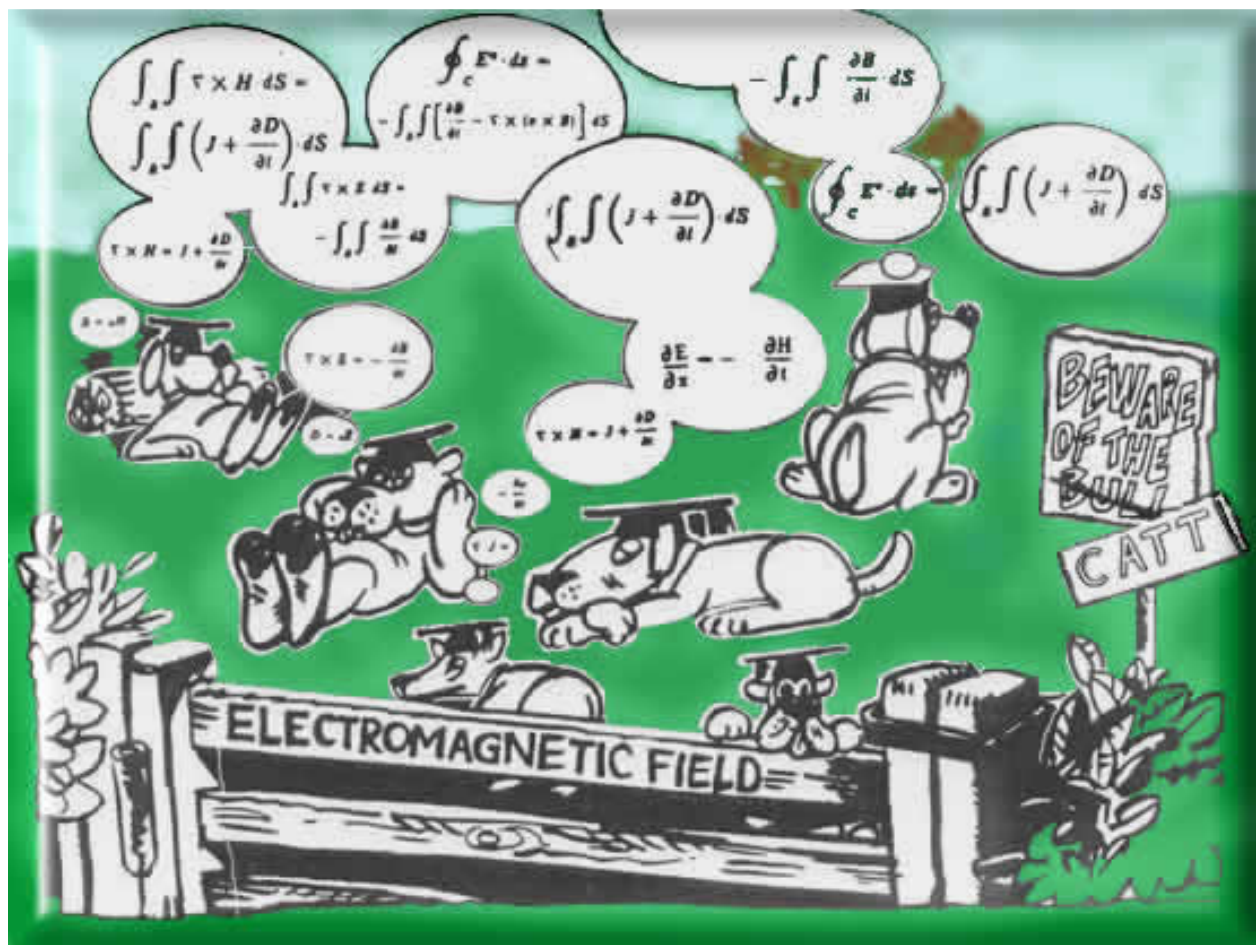 ∫ₛ∫ ∇ × H dS =
∫ₛ∫ (J + ∂D/∂t) · dS
∮_C E* · ds =
- ∫ₛ∫ [∂B/∂t - ∇ × (v × B)] dS
- ∫ₛ∫ ∂B/∂t · dS
∫ₛ∫ ∇ × E dS =
- ∫ₛ∫ ∂B/∂t dS
∇ × H = J + ∂D/∂t
∫ₛ∫ (J + ∂D/∂t) · dS
∮_C E* · ds =
∫ₛ∫ (J + ∂D/∂t) dS
∇ × E = - ∂B/∂t
∂E/∂x = - ∂H/∂t
∇ × H = J + ∂D/∂t
BEWARE
OF THE
BULL
CATT
ELECTROMAGNETIC FIELD